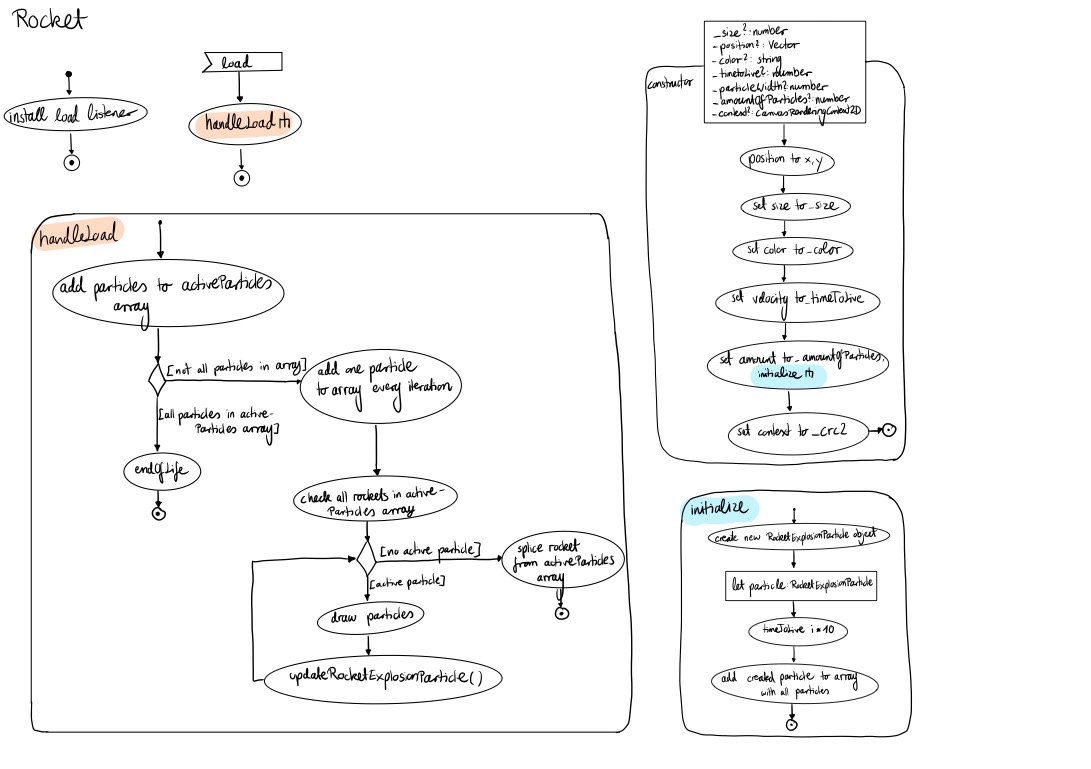 Rocket
install load listener
load
handleLoad
handleLoad
add particles to activeParticles
array
[not all particles in array]
add one particle
to array every iteration
[all particles in active-
Particles array]
endOfLife
check all rockets in active-
Particles array
[no active particle]
splice rocket
from activeParticles
array
[active particle]
draw particles
updateRocketExplosionParticle()
constructor
_size?: number
-position?: Vector
-color?: string
-timetolive?: number
-particleWidth?: number
-amountOfParticles?: number
-context?: CanvasRenderingContext2D
position to x,y
set size to _size
set color to _color
set velocity to _timeToLive
set amount to _amountOfParticles,
initialize
set context to _crc2
initialize
create new RocketExplosionParticle object
let particle: RocketExplosionParticle
timeToLive i*10
add created particle to array
with all particles